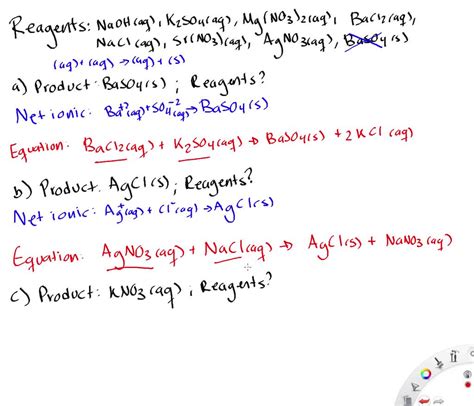 Reagents: NaOH(aq), K2SO4(aq), Mg(NO3)2(aq), BaCl2(aq),
NaCl(aq), Sr(NO3)(aq), AgNO3(aq), BaSO4(s)
(aq) + (aq) → (aq) + (s)
a) Product: BaSO4(s) ; Reagents?
Net ionic: Ba+2(aq) + SO4-2(aq) → BaSO4(s)
Equation: BaCl2(aq) + K2SO4(aq) → BaSO4(s) + 2KCl(aq)
b) Product: AgCl(s) ; Reagents?
Net ionic: Ag+(aq) + Cl-(aq) → AgCl(s)
Equation: AgNO3(aq) + NaCl(aq) → AgCl(s) + NaNO3(aq)
c) Product: KNO3(aq) ; Reagents?